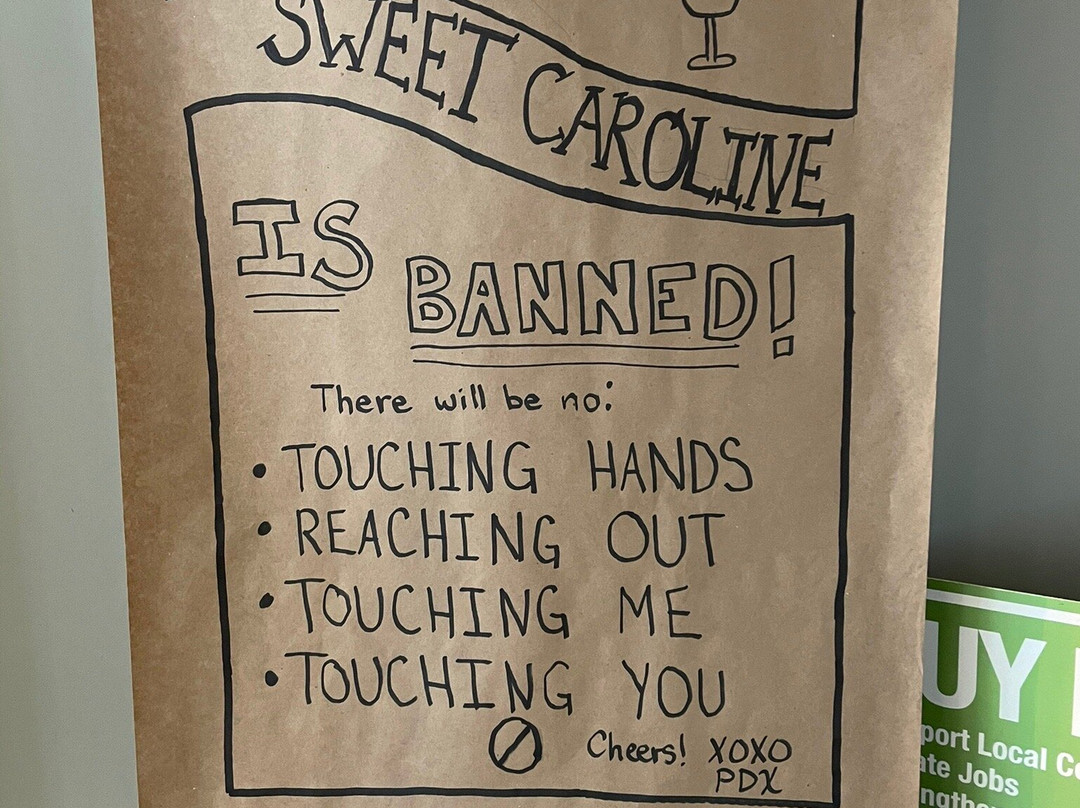 SWEET CAROLINE
IS
BANNED!
There will be no:
• TOUCHING HANDS
• REACHING OUT
• TOUCHING ME
• TOUCHING YOU
Cheers! XOXO
PDX
UY
port Local
ate Jobs